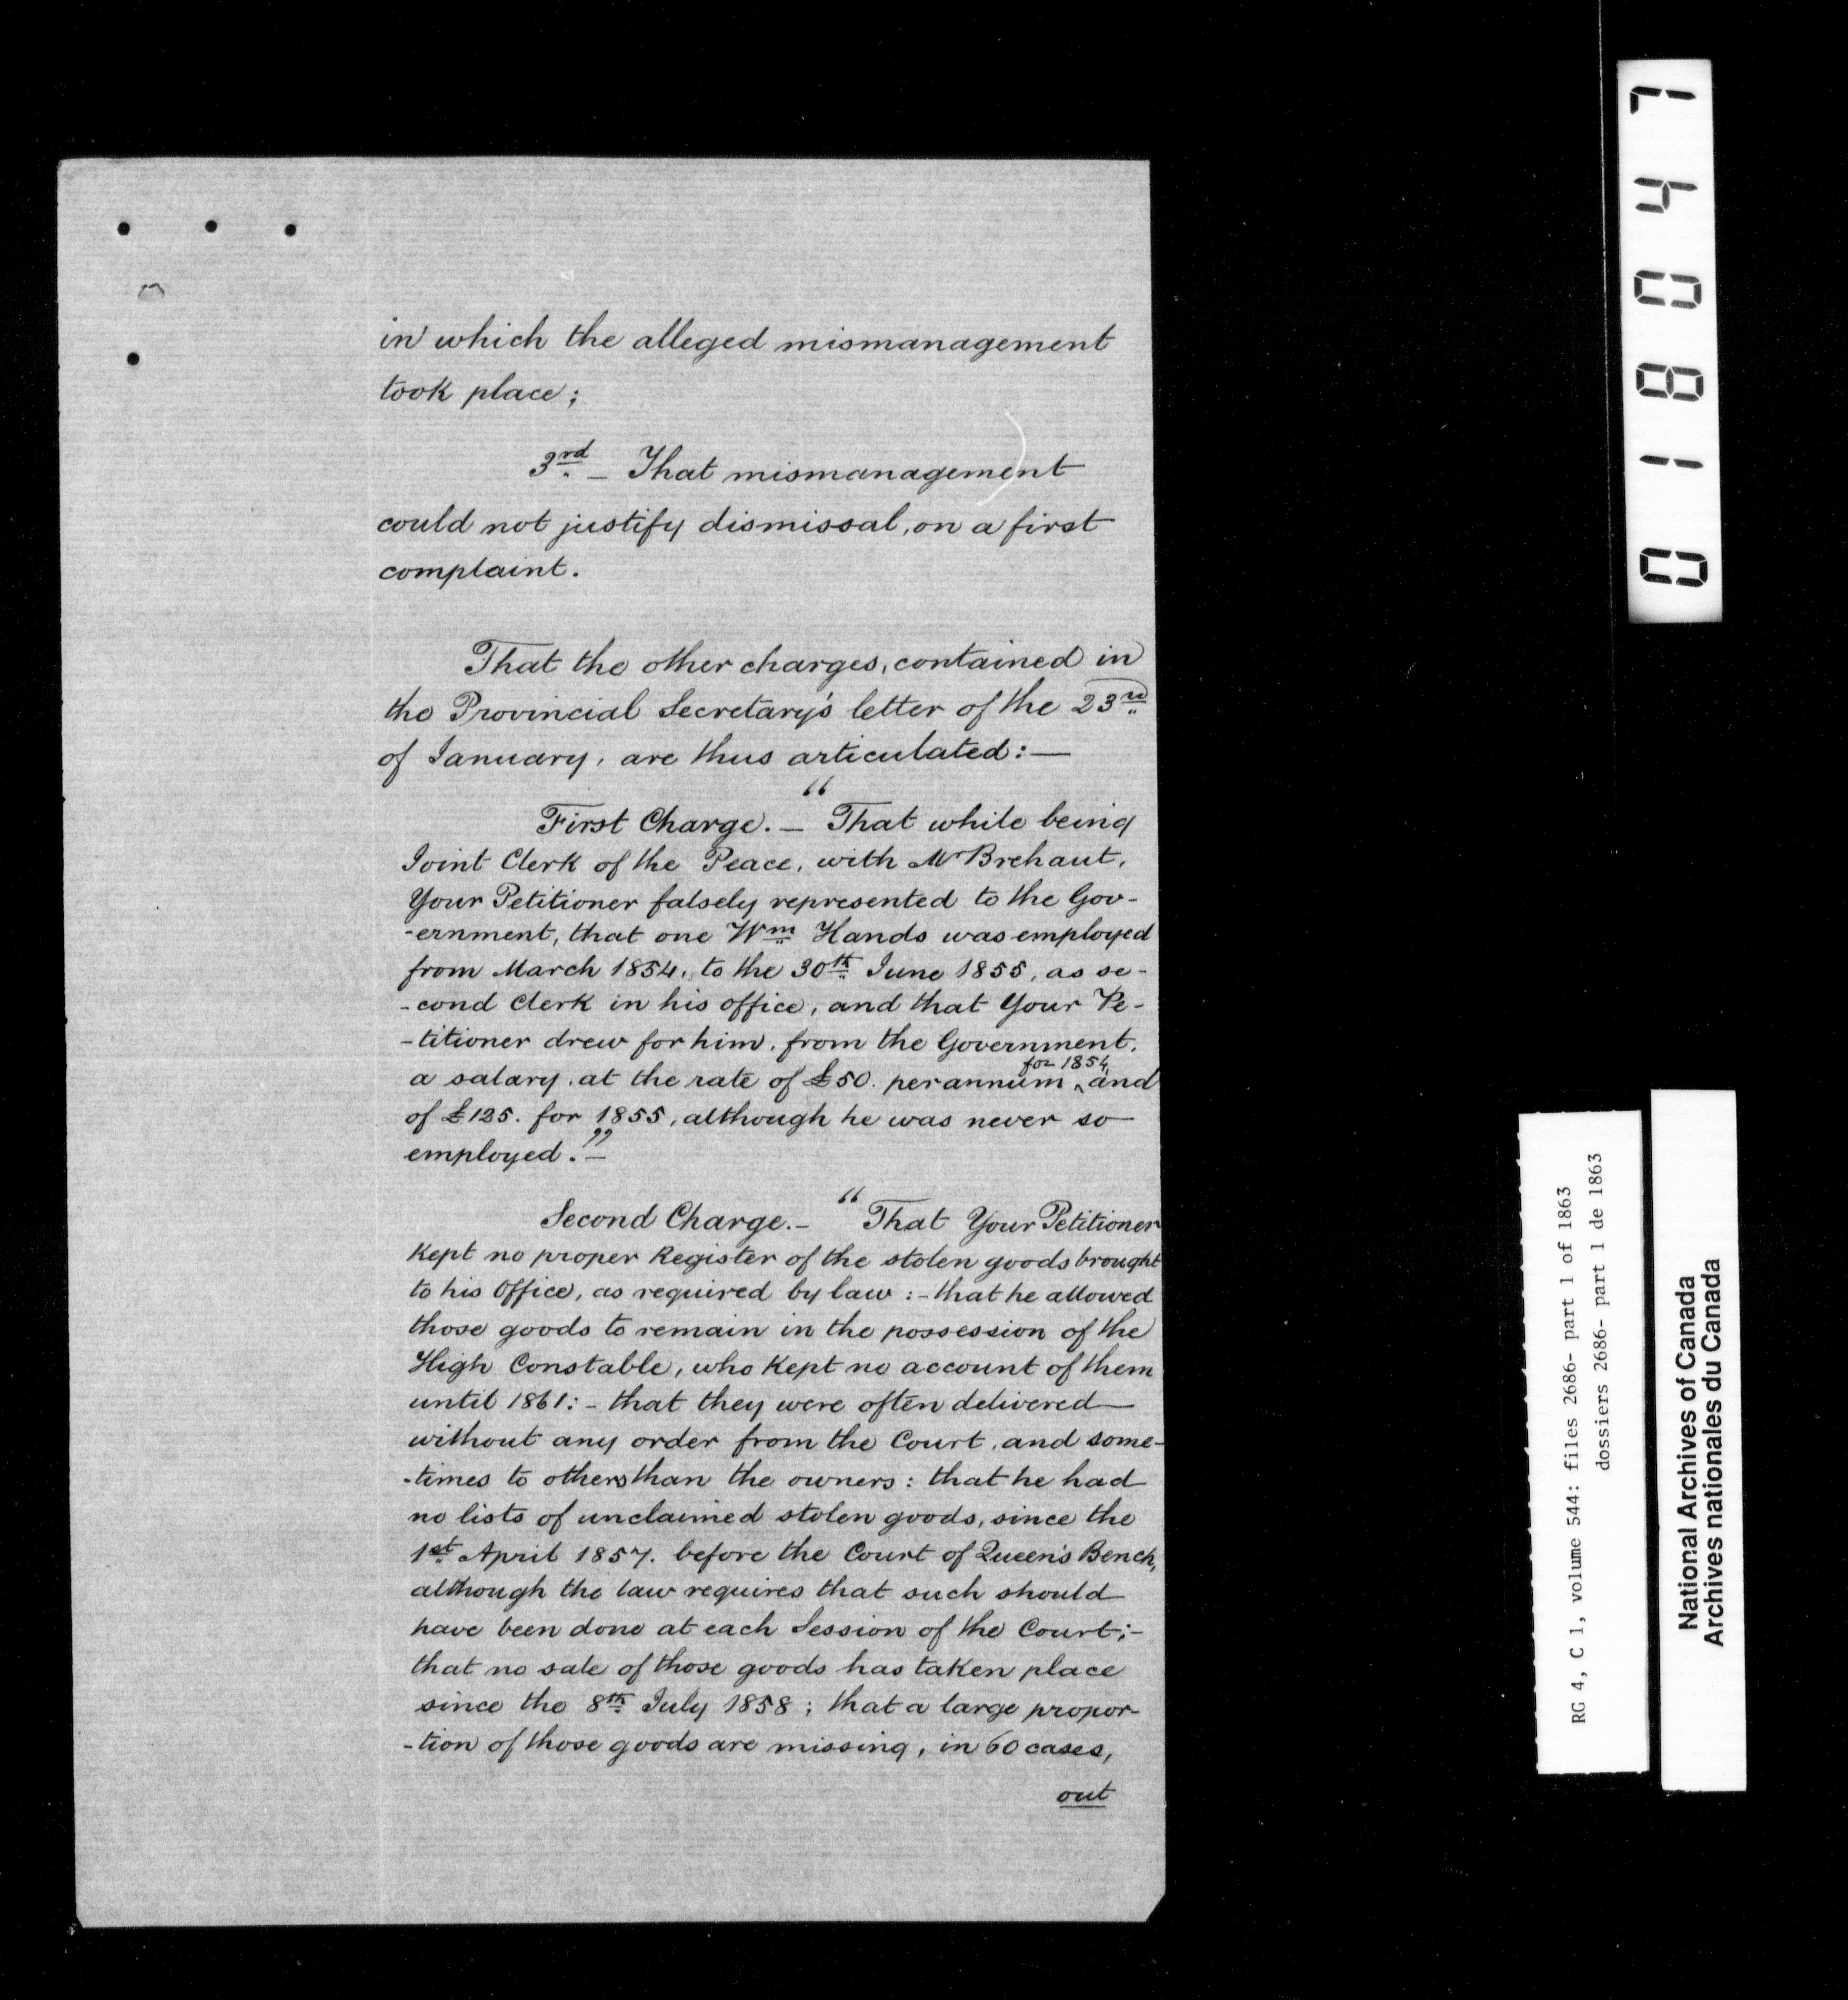 in which the alleged mismanagement
took place;
3rd. — That mismanagement
could not justify dismissal, on a first
complaint.
That the other charges, contained in
the Provincial Secretary's letter of the 23rd
of January, are thus articulated: —
First Charge. — "That while being
Joint Clerk of the Peace, with Mr Brehaut,
Your Petitioner falsely represented to the Gov-
-ernment, that one Wm Hands was employed
from March 1854, to the 30th June 1855, as se-
-cond Clerk in his office, and that Your Pe-
-titioner drew for him, from the Government,
a salary, at the rate of £50. per annum for 1854, and
of £125. for 1855, although he was never so
employed." —
Second Charge. — "That Your Petitioner
Kept no proper Register of the stolen goods brought
to his Office, as required by law : - that he allowed
those goods to remain in the possession of the
High Constable, who Kept no account of them
until 1861: - that they were often delivered
without any order from the Court, and some-
-times to others than the owners : that he had
no lists of unclaimed stolen goods, since the
1st April 1857. before the Court of Queen's Bench,
although the law requires that such should
have been done at each Session of the Court; -
that no sale of those goods has taken place
since the 8th July 1858 ; that a large propor-
-tion of those goods are missing, in 60 cases,
out
018047
RG 4, C 1, volume 544: files 2686- part 1 of 1863
dossiers 2686- part 1 de 1863
National Archives of Canada
Archives nationales du Canada